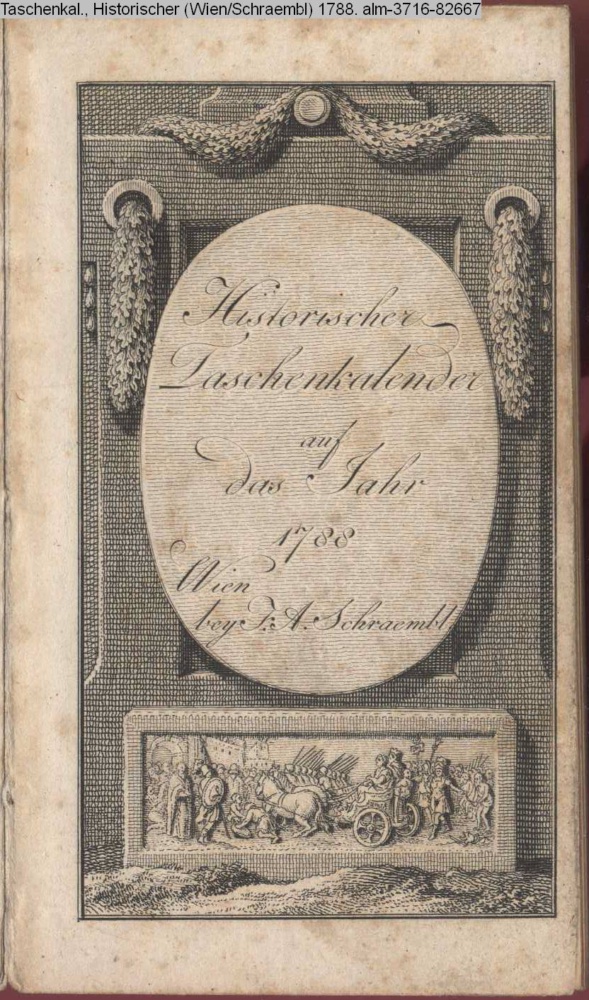 Taschenkal., Historischer (Wien/Schraembl) 1788. alm-3716-82667
Historischer
Taschenkalender
auf
das Jahr
1788
Wien
bey F. A. Schraembl